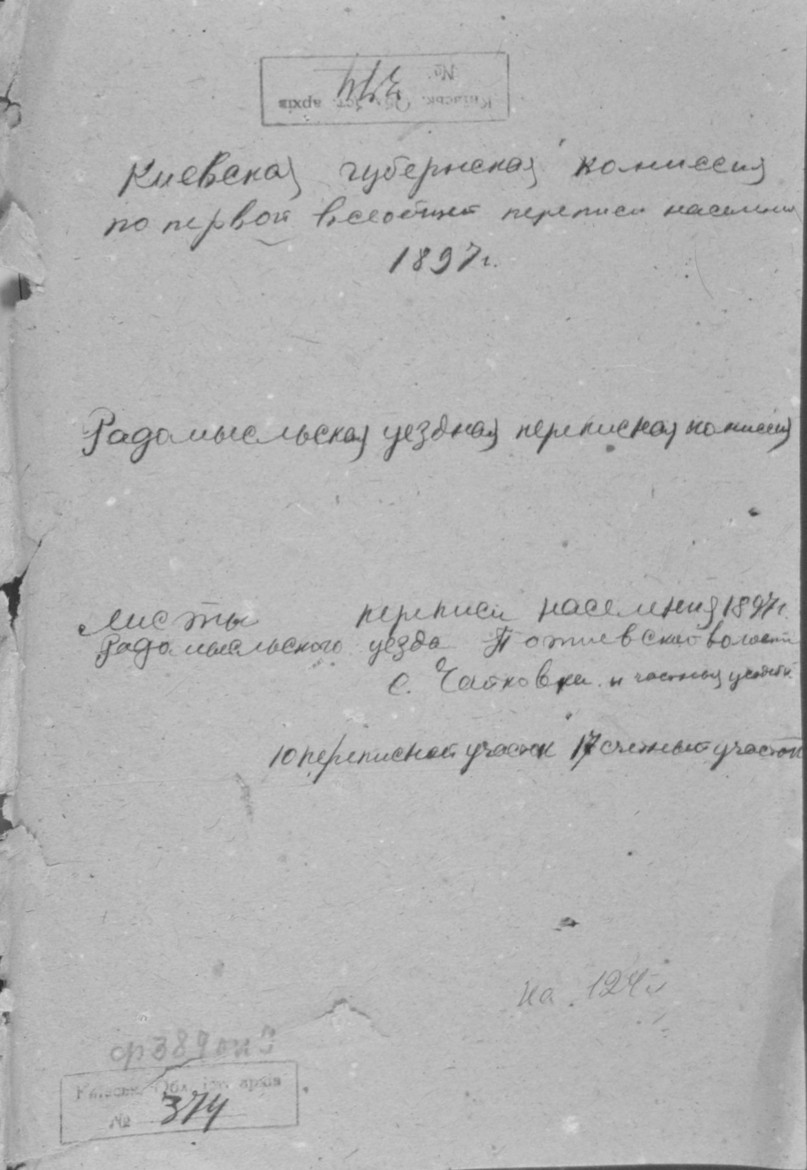 Київськ. Обл. іст. архів
№ 374
Киевская губернская комиссия
по первой всеобщей переписи населения
1897 г.
Радомысльская уездная переписная комиссия
Листы переписи населения 1897 г.
Радомысльского уезда Потиевской волости
с. Чайковка и частных усадеб
10 переписной участок 17 счетный участок
на 124 л
ф 389 оп
Київськ. Обл. іст. архів
№ 374